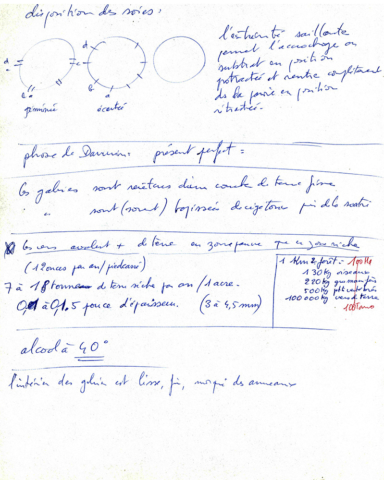 disposition des soies :
l'extrémité saillante
permet l'accrochage au
substrat en position
protractée et rentre complètement
ds la paroi en position
rétractée.
a
b
d
géminée
écartée
phrase de Darwin : présent perfect :
Les galeries sont revêtues d'une couche de terre fine
" " sont (sont) tapissées de
Les vers avalent + de terre en zone pauvre que en zone riche
(12 onces par an / pied carré)
7 à 18 tonnes de terre sèche par an / 1 acre.
0,1 à 0,1.5 pouce d'épaisseur. (3 à 4,5 mm)
1 Km2 forêt =
130 kg oiseaux
220 kg
500 kg
100 000 kg vers de terre
100 tonnes
alcool à 40°
l'intérieur des galeries est lisse, fin, des anneaux